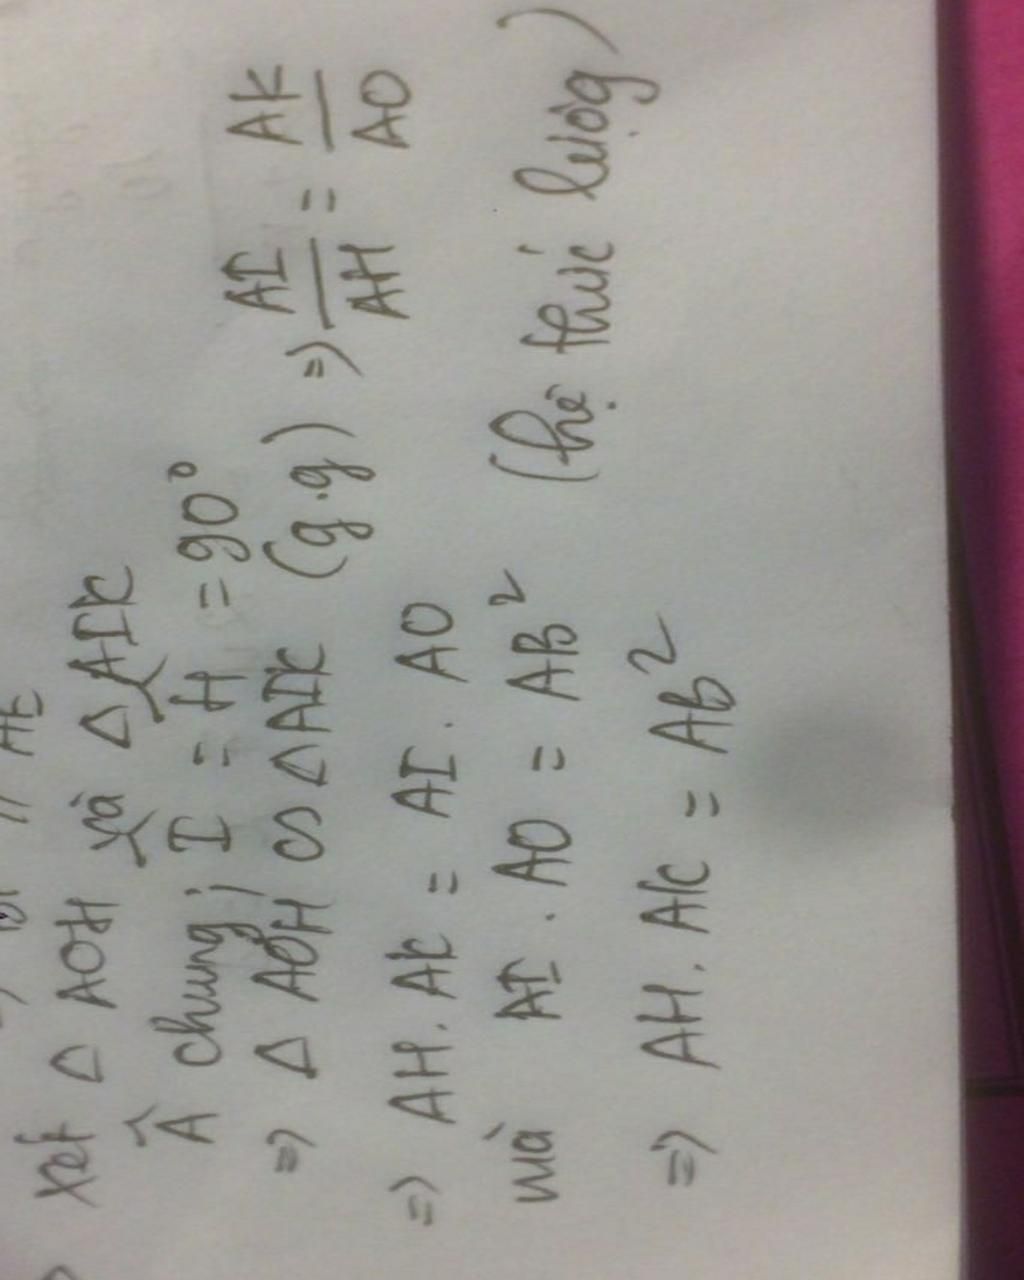 // AE
Xét Δ AOH và Δ AIK
Â chung; I = H = 90°
=> Δ AOH ∽ Δ AIK (g.g) => AI/AH = AK/AO
=> AH. AK = AI. AO
mà AI. AO = AB² (hệ thức lượg)
=> AH. AK = AB²